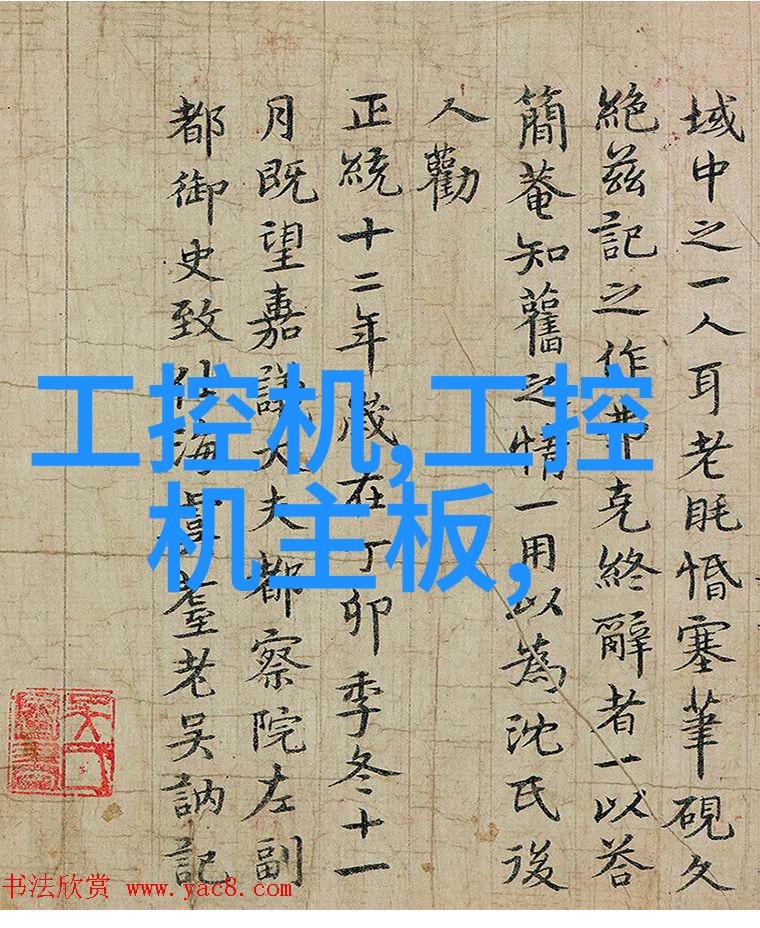 域中之一人耳老眊惛塞筆硯久
絕茲記之作弗克終辭者一以荅
簡菴知舊之情一用以為沈氏後
人勸
正統十二年歲在丁卯季冬十一
月既望嘉議大夫都察院左副
都御史致仕海虞耄老吳訥記
工控机,工控
机主板,
书法欣赏 www.yac8.com